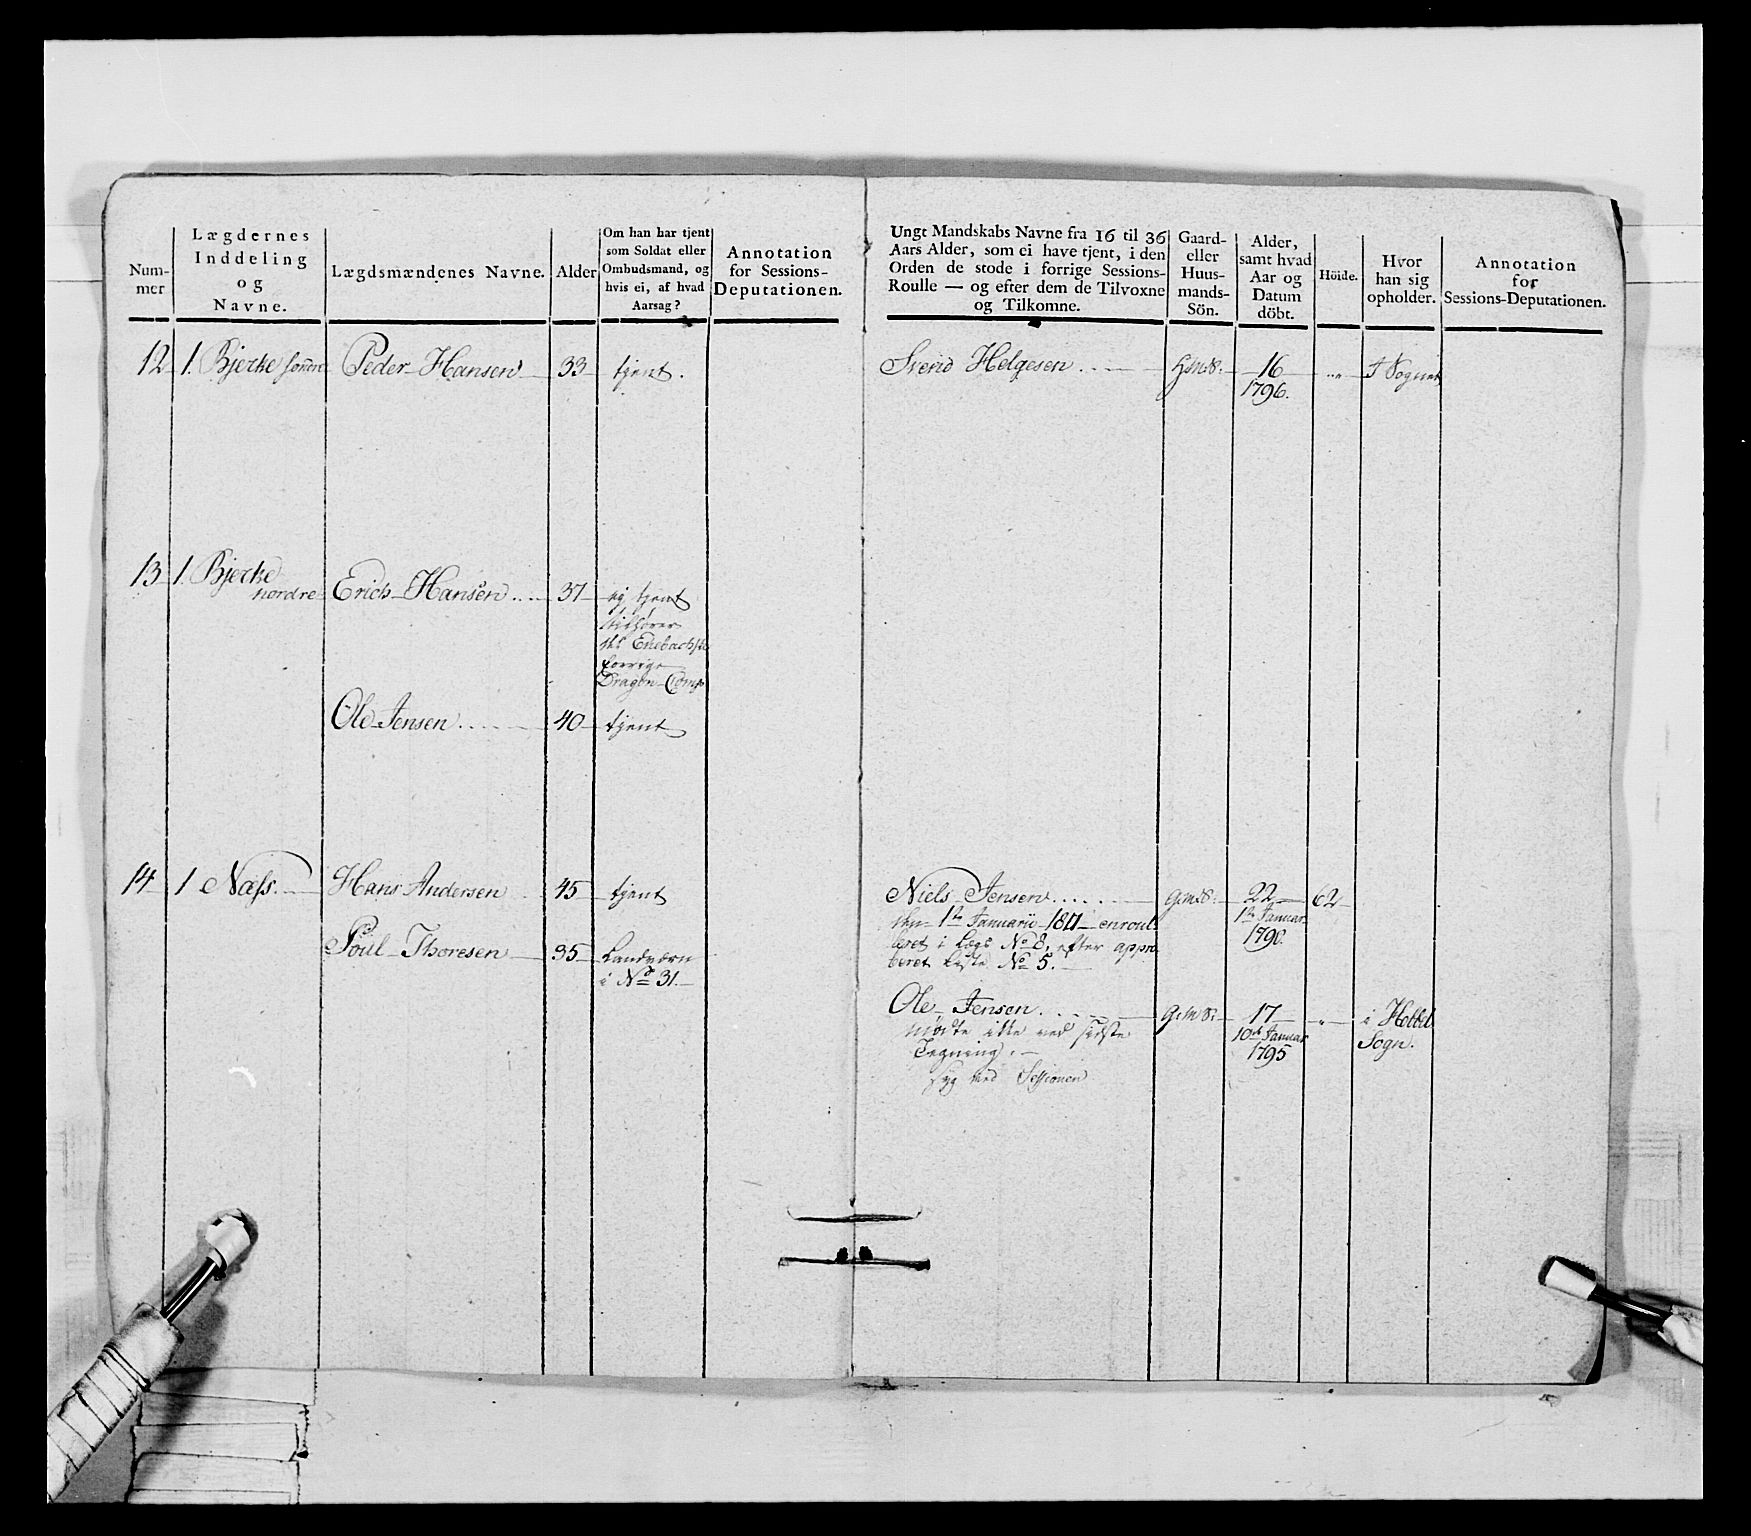 Num-
mer
Lægdernes
Inddeling
og
Navne.
Lægdsmændenes Navne.
Alder
Om han har tjent
som Soldat eller
Ombudsmand, og
hvis ei, af hvad
Aarsag?
Annotation
for Sessions-
Deputationen.
12 1. Bjerke søndre Peder Hansen 33 tjent.
13 1. Bjerke
nordre Erich Hansen 37 ej tjent
tilhører
det Enebachske
forrige
Dragon Comp
Ole Jensen 40 tjent
14 1 Næss. Hans Andersen 45 tjent
Poul Thoresen 35 Landværn
i No 31.
Ungt Mandskabs Navne fra 16 til 36
Aars Alder, som ei have tjent, i den
Orden de stode i forrige Sessions-
Roulle — og efter dem de Tilvoxne
og Tilkomne.
Gaard-
eller
Huus-
mands-
Sön.
Alder,
samt hvad
Aar og
Datum
döbt.
Höide.
Hvor
han sig
opholder.
Annotation
for
Sessions-Deputationen.
Svend Helgesen 16 " I Sognet
1796.
Niels Jensen G:m:S: 22 62
den 1te Januarii 1811 enroul- 1te Januar
leret i Lægd No 8, efter appro- 1790.
beret Liste No 5.
Ole Jensen G:m:S: 17 " i Hobbel
mødte ikke ved sidste 10de Januar Sogn.
Tegning. 1795
syg ved Sessionen